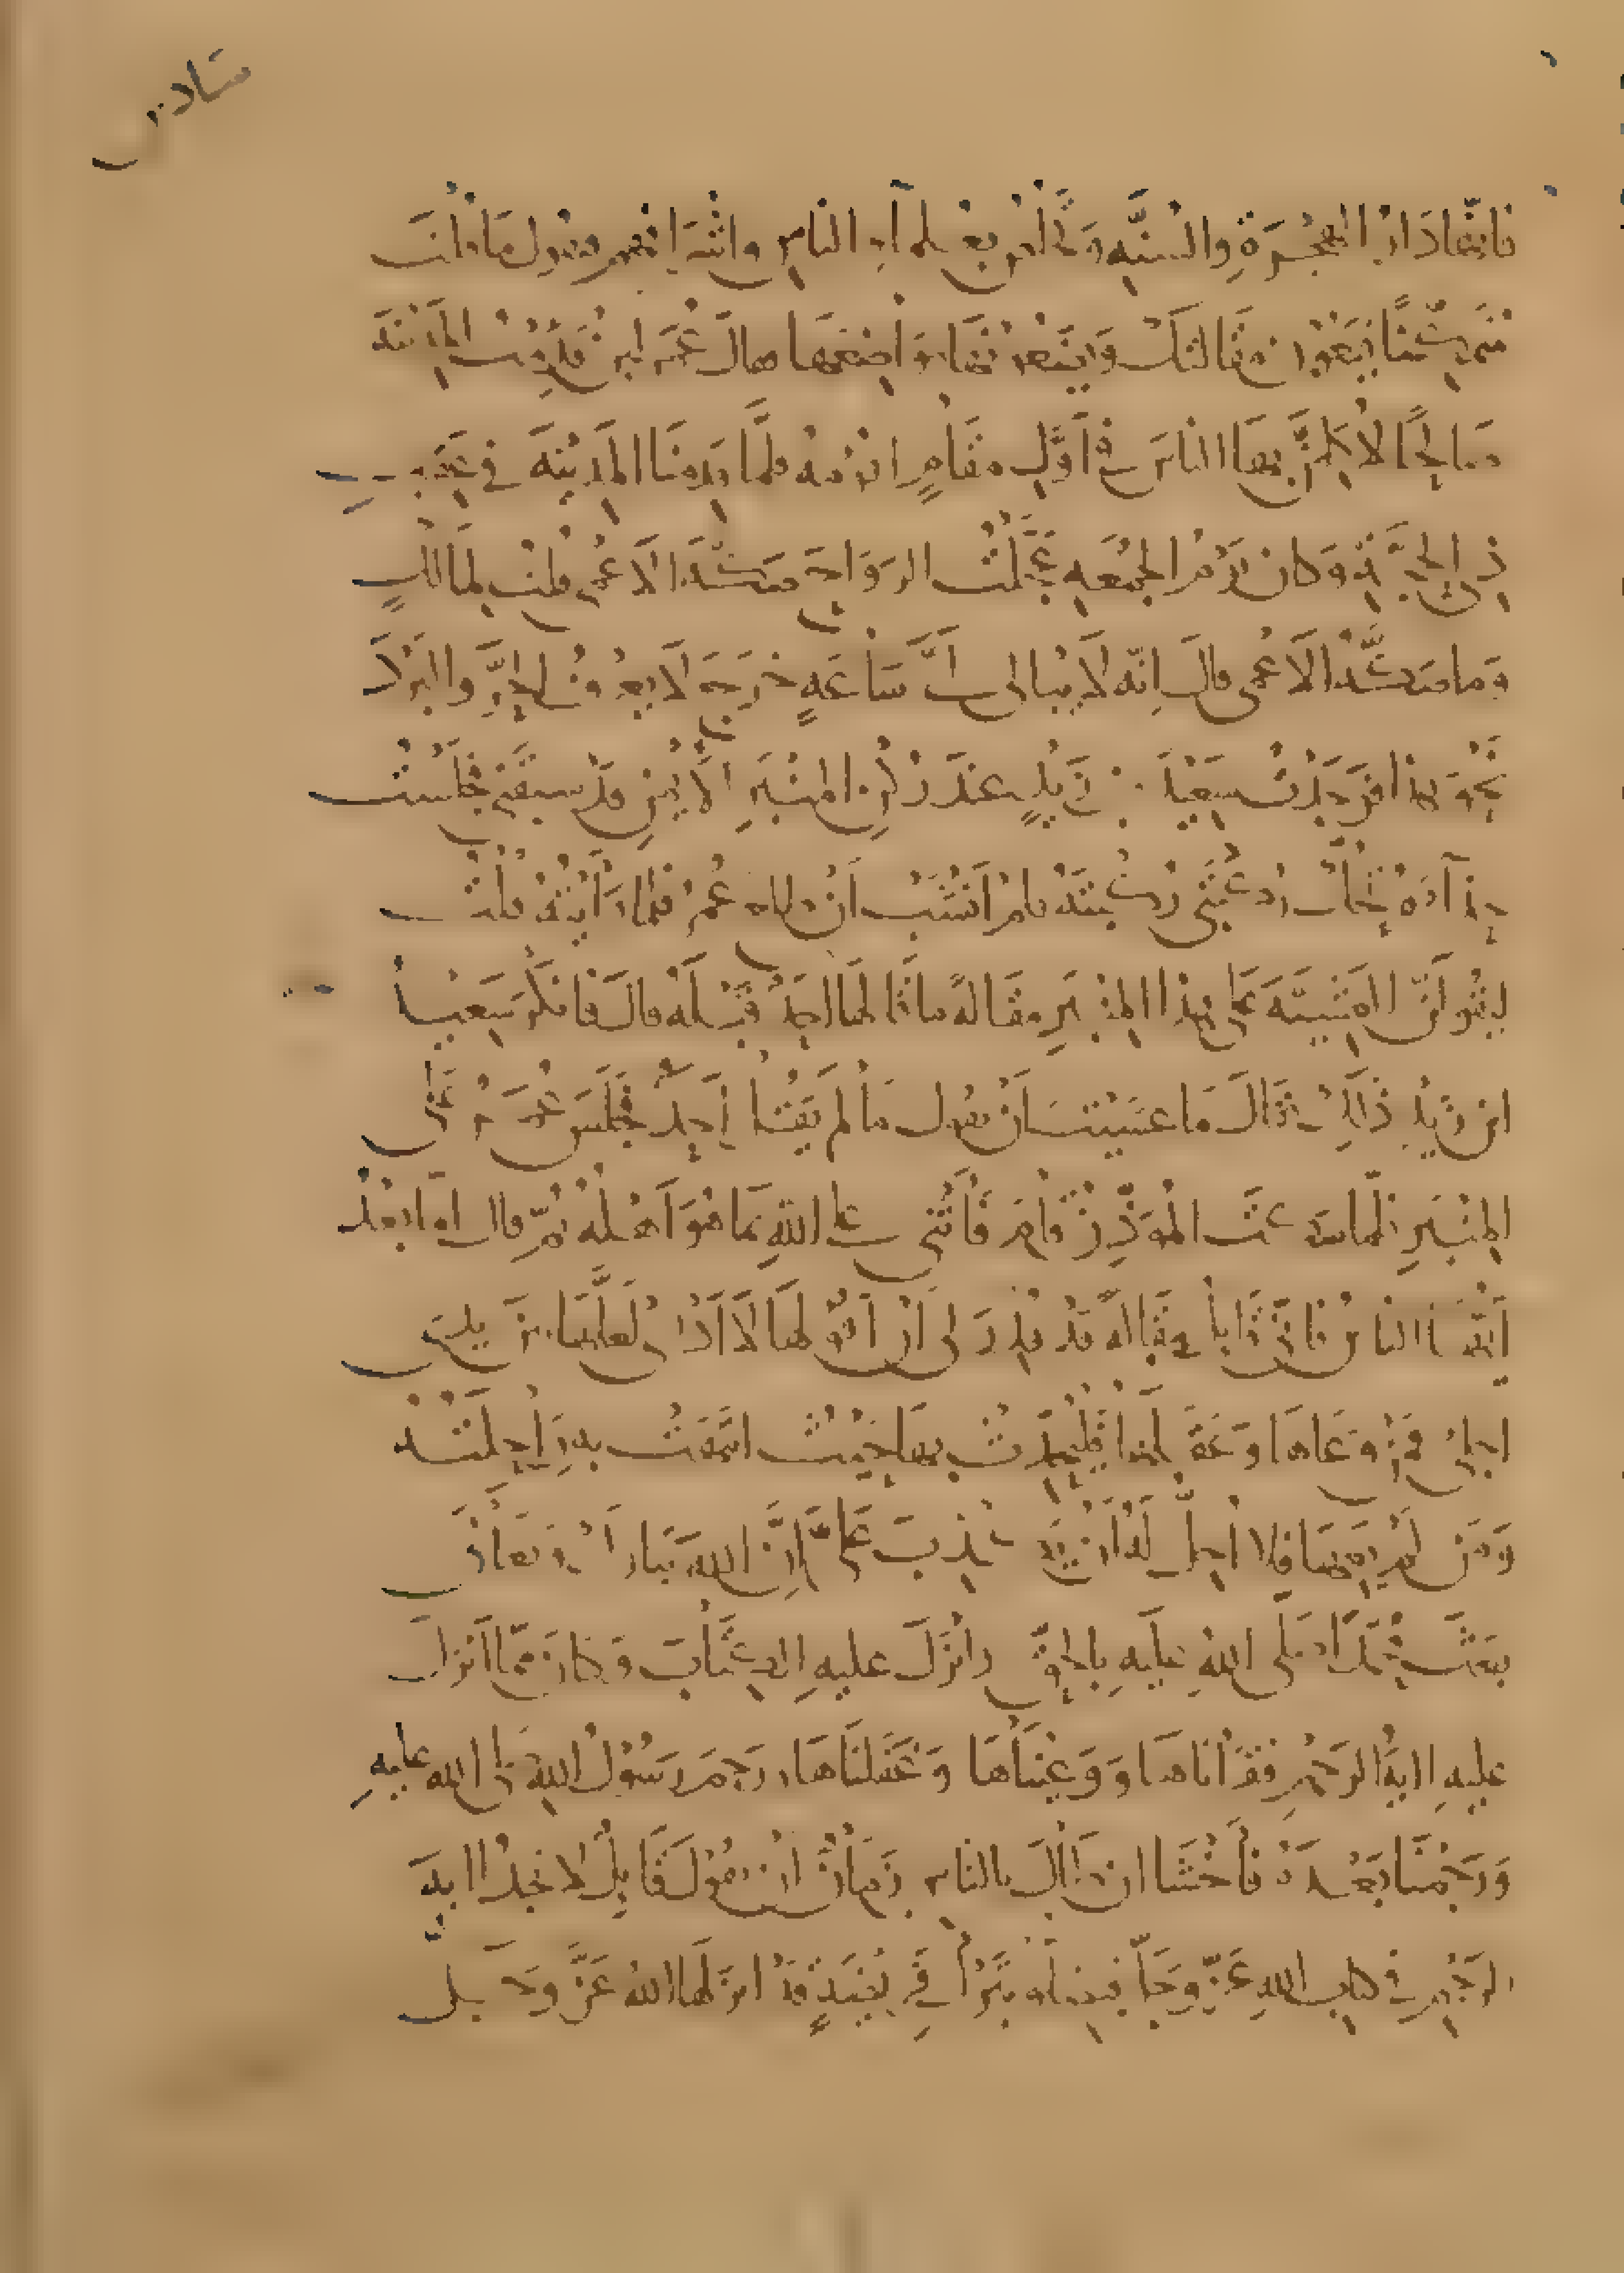 سادس
فانها دار الهجرة والسنه وتخلص بعلماء الناس واشرافهم فتقول ما قلت
متمكنا فيعون مقالتك ويضعونها مواضعها فقال عمر لئن قدمت المدينة
صالحا لاكلمن بها الناس في اول مقام اقومه فلما قدمنا المدينه في عقب
ذي الحجة وكان يوم الجمعه عجلت الرواح صكة الاعمى قلت لمالك
وما صكة الاعمى قال انه لا يبالي اي ساعه خرج لا يعرف الحر والبرد
نحو هذا فوجدت سعيد بن زيد عند ركن المنبر الايمن قد سبقني فجلست
حذاءه تحك ركبتي ركبته فلم انشب ان طلع عمر فلما رايته قلت
ليقولن العشيه على هذا المنبر مقالة ما قالها احد قبله قال فانكر سعيد
ابن زيد ذلك فقال ما عسيت ان يقول ما لم يقل احد فجلس عمر على
المنبر فلما سكت المؤذن قام فاثنى على الله بما هو اهله ثم قال اما بعد
ايها الناس فاني قايل مقالة قد قدر لي ان اقولها لا ادري لعلها بين يدي
اجلي فمن وعاها وعقلها فليحدث بها حيث انتهت به راحلته
ومن لم يعها فلا احل له ان يكذب علي ان الله تبارك وتعالى
بعث محمدا صلى الله عليه بالحق وانزل عليه الكتاب وكان مما انزل
عليه اية الرجم فقراناها ووعيناها وعقلناها ورجم رسول الله صلى الله عليه
ورجمنا بعده فاخشا ان طال بالناس زمان ان يقول قايل لا نجد اية
الرجم في كتاب الله عز وجل فيضلو بترك فريضة قد انزلها الله عز وجل